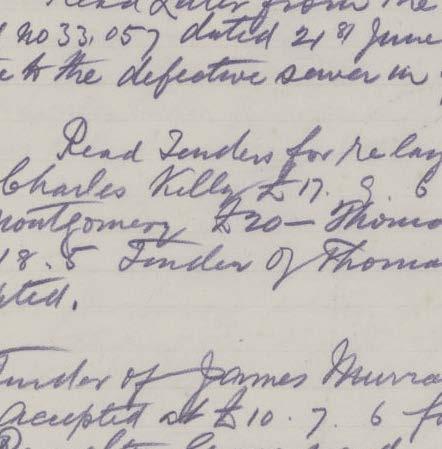 Read Letter from the
no 33,057 dated 21st June
to the defective sewer in
Read Tenders for relay
Charles Kelly £17. 9. 6
Montgomery £20 — Thoma
18. 5 Tender of Thoma
pted.
Tender of James Murra
accepted at £10. 7. 6 fo